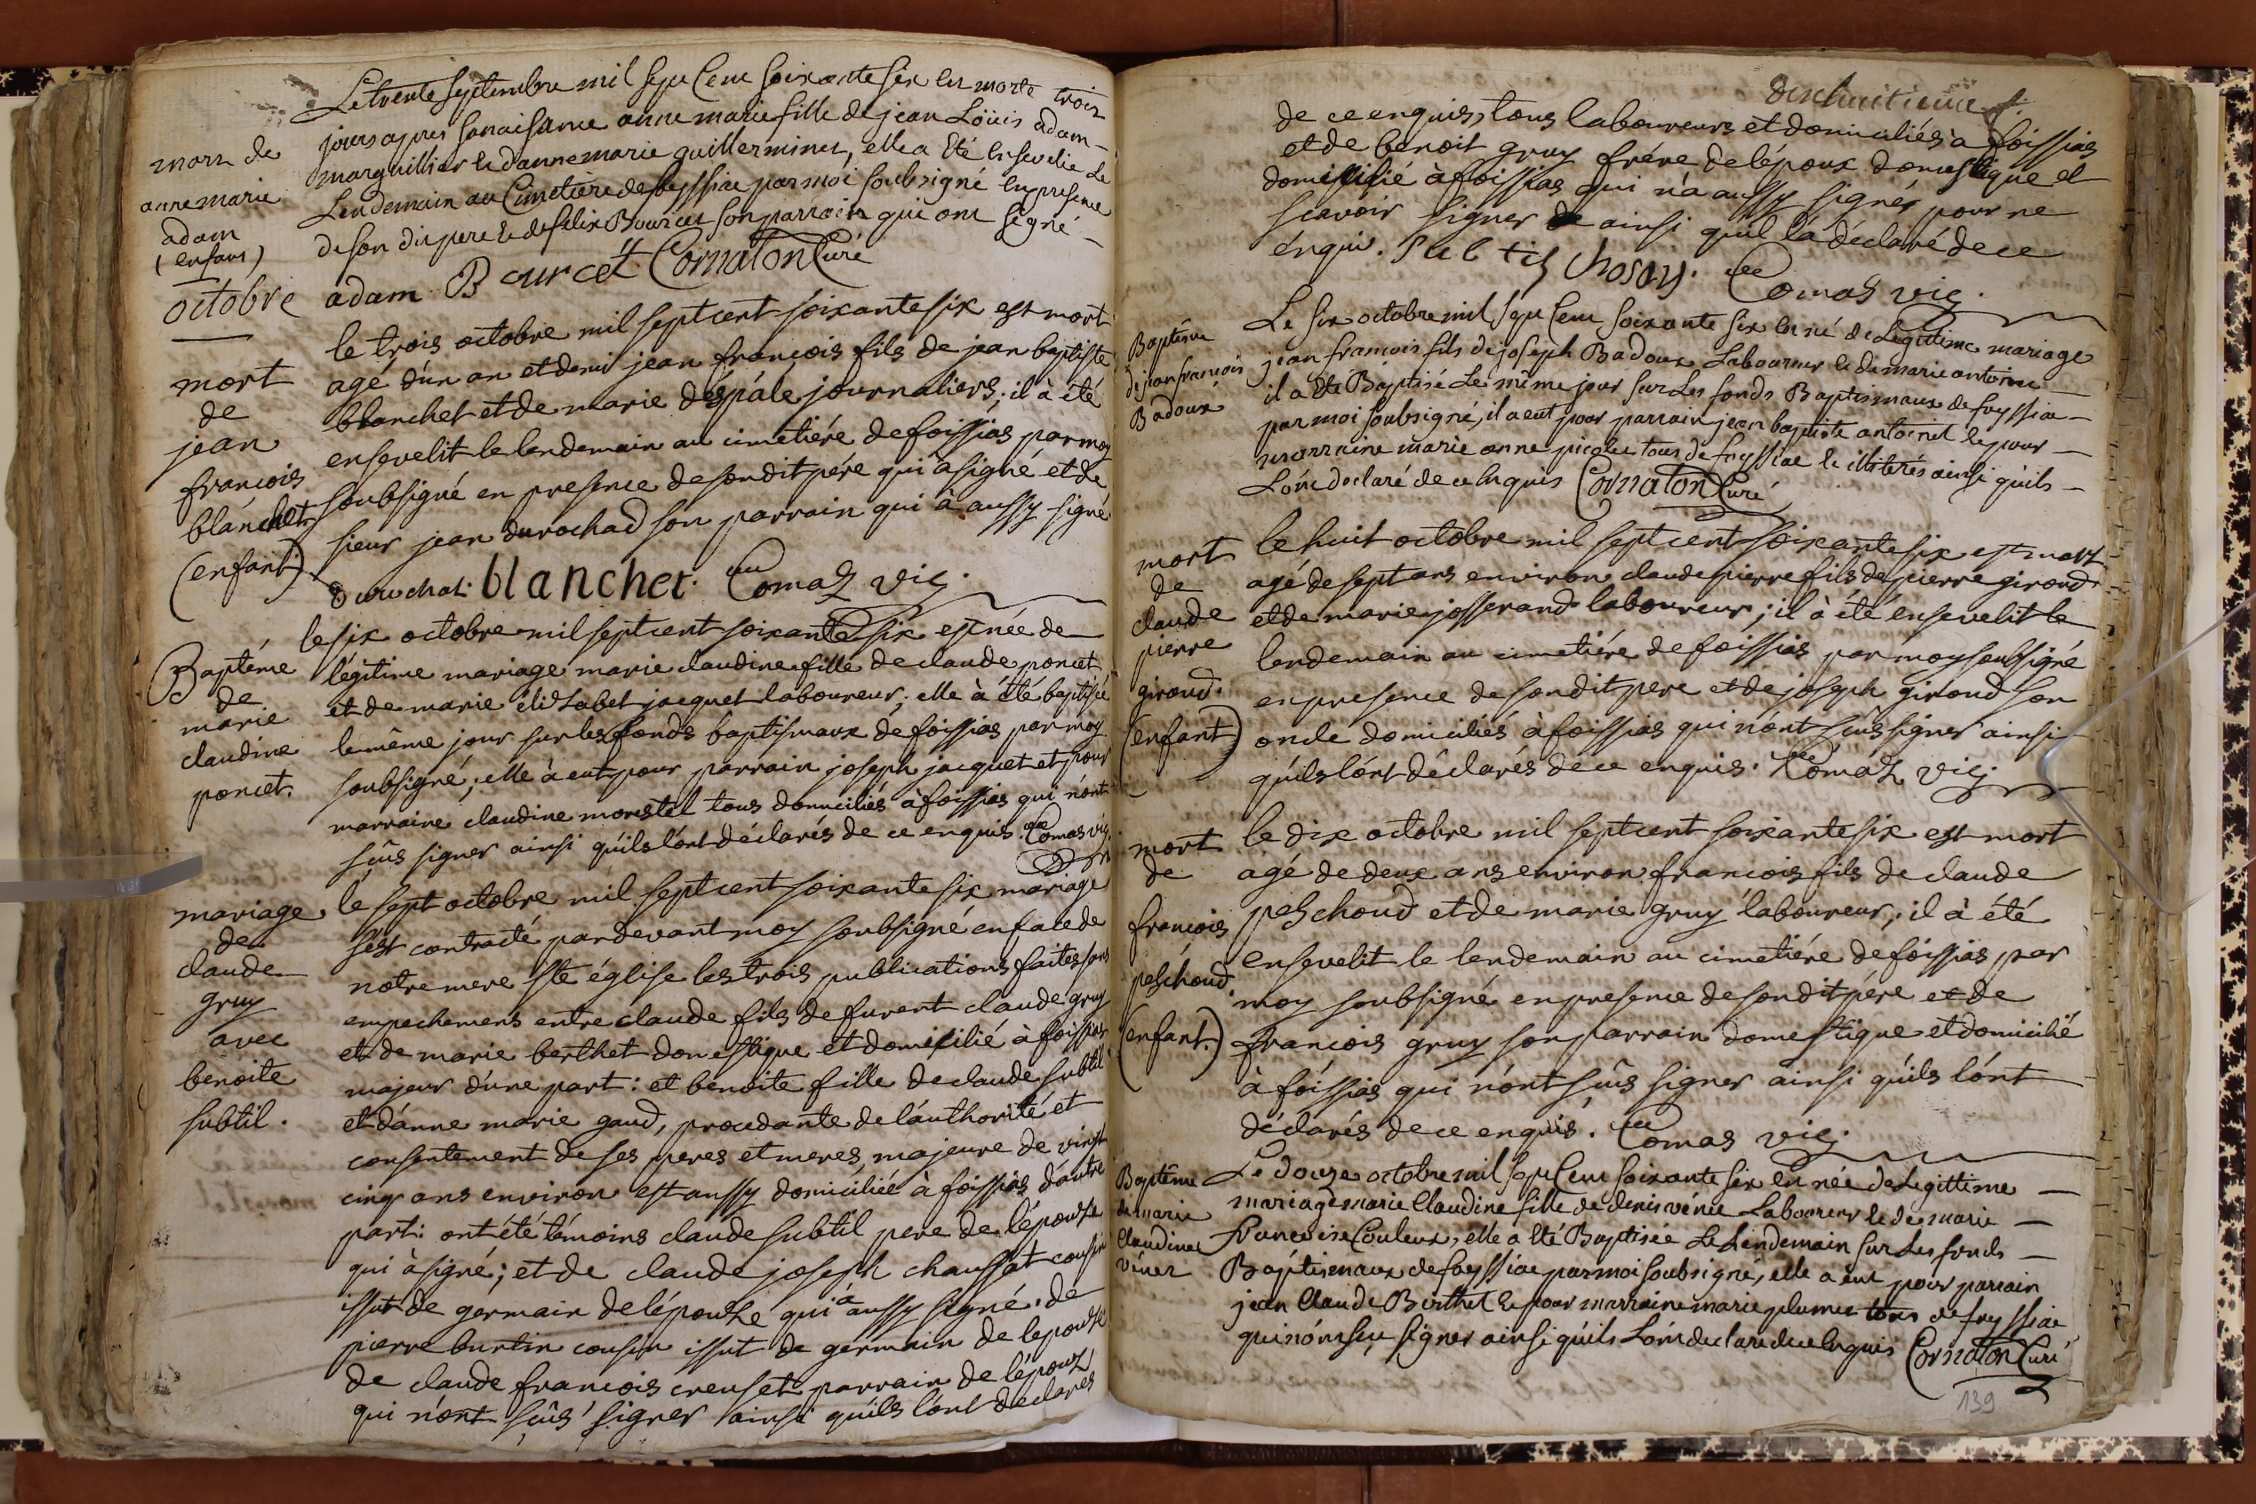 Le trente septembre mil sept cent soixante six est morte trois
jours apres sa naissance anne marie fille de jean Loüis adam
marguillier et danne marie guillerminet, elle a Eté Ensevelie Le
Lendemain au Cimetiere de foyssiac par moi soubsigné En presence
de son dit pere et de felix Bourcet son parrain qui ont signé
adam Bourcet Cornaton Curé
mort de
anne marie
adam
(enfant)
octobre
le trois octobre mil sept cent soixante six est mort
agé d'un an et demi jean françois fils de jean baptiste
blanchet et de marie déspále journaliers; il à été
ensevelit le lendemain au cimetiére de foissias par moy
soubsigné en presence de son dit pére qui à signé, et de
sieur jean durochad son parrain qui à aussy signé
durochat. blanchet. Comas vic.
mort
de
jean
françois
blánchet
(enfant)
le six octobre mil sept cent soixante six est née de
légitime mariage marie claudine fille de claude poncet
et de marie élisabet jacquet laboureur; elle à été baptisée
le même jour sur les fonds baptismaux de foissias par moy
soubsigné; elle à eut pour parrain joseph jacquet et pour
marraine claudine morestel tous domiciliés à foissias qui n'ont
sçûs signer ainsi qu'ils lónt déclarés de ce enquis. Comas vic.
Baptéme
de
marie
claudine
poncet.
le sept octobre mil sept cent soixante six mariage
s'est contracté pardevant moy soubsigné en face de
notre mere ste église les trois publications faites sans
empechemens entre claude fils de furent claude gruy
et de marie berthet domestique et domicilié à foissias
majeur d'une part: et benoite fille de claude subtil
et dánne marie gaud, procedante de láuthorité et
consentement de ses peres et meres, majeure de vingt
cinq ans environ est aussy domiciliée à foissias dáutre
part: ont été témoins claude subtil pere de lépouse
qui à signé; et de claude joseph chaussat cousin
issut de germain de lépouse qui a aussy signé. de
pierre burtin cousin issut de germain de lepouse
de claude françois creuset parrain de lépoux
qui n'ont sçûs signer ainsi qu'ils lónt declarés
mariage
de
claude
gruy
avec
benoite
subtil.
dixhuitieme f.
de ce enquis, tous laboureurs et domiciliés à foissias
et de benoit gruy frére de lépoux domestique et
domicilié à foissias qui n'a aussy signér pour ne
sçavoir signer ainsi qu'il lá déclaré de ce
enquis. Comas vic.
Le six octobre mil sept Cent soixante six Est né de Legitime mariage
jean françois fils de joseph Badoux Laboureur et de marie antoinet
il a Eté Baptisé Le même jour sur Les fonds Baptismaux de foyssiac
par moi soubsigné, il a eut pour parrain jean baptiste antoinet et pour
marraine marie anne picolet tous de foyssiac et illiterés ainsi qu'ils
Lónt declaré de ce Enquis Cornaton Curé
Baptême
de jean françois
Badoux
le huit octobre mil sept cent soixante six est mort
agé de sept ans environ claude pierre fils de pierre giroud
et de marie josserand laboureur; il à été ensevelit le
lendemain au cimetiére de foissias par moy soubsigné
en presence de son dit pere et de joseph giroud son
oncle domiciliés à foissias qui n'ont sçûs signer ainsi
qu'ils lónt déclarés de ce enquis. Comas vic.
mort
de
claude
pierre
giroud.
(enfant)
le dix octobre mil sept cent soixante six est mort
agé de deux ans environ françois fils de claude
peschoud et de marie gruy laboureur; il à été
ensevelit le lendemain au cimetiére de foissias par
moy soubsigné en presence de son dit pére et de
françois gruy son parrain domestique et domicilié
à foissias qui n'ont sçûs signer ainsi qu'ils lónt
déclarés de ce enquis. Comas vic.
mort
de
françois
peschoud.
(enfant.)
Le douze octobre mil sept Cent soixante six Est née de Legittime
mariage marie Claudine fille de denis vénet Laboureur et de marie
françoise Couleux, elle a Eté Baptisée Le Lendemain sur Les fonds
Baptismaux de foyssiac par moi soubsigné, elle a eut pour parrain
jean Claude Berthet et pour marraine marie plumet tous de foyssiac
qui n'ont sçu signer ainsi qu'ils Lónt declaré de ce Enquis Cornaton Curé
Baptême
de marie
Claudine
vénet
139